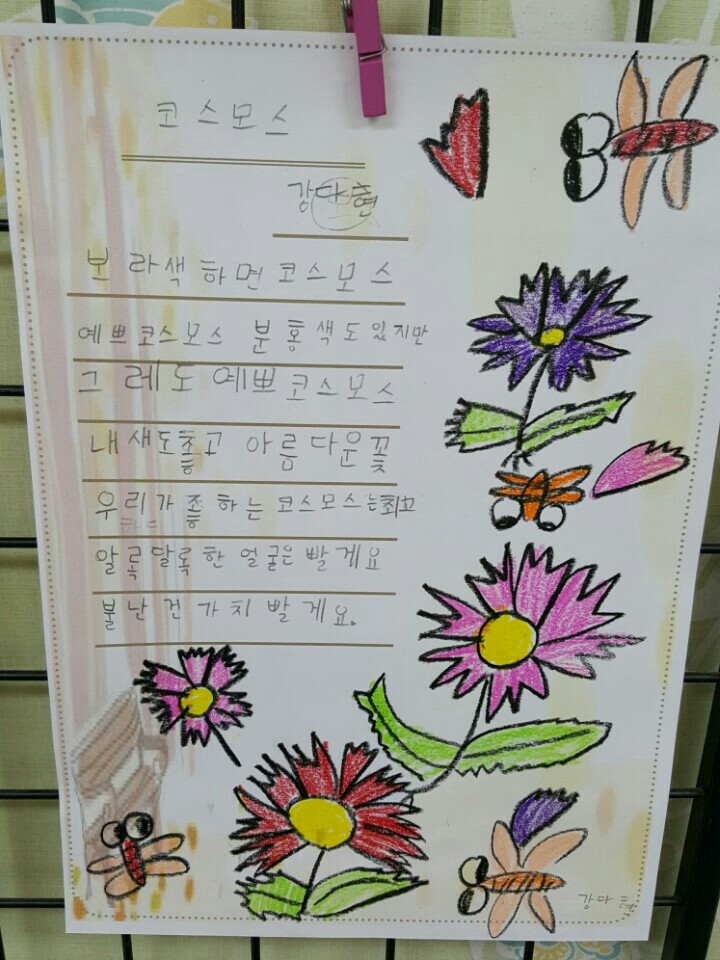 코스모스
강다현
보라색하면코스모스
예쁘코스모스 분홍색도있지만
그레도예쁘코스모스
내새도좋고 아름다운꽃
우리가 좋하는 코스모스는최고
알록달록한 얼굴은 빨게요
불난건가치빨게요.
강다현